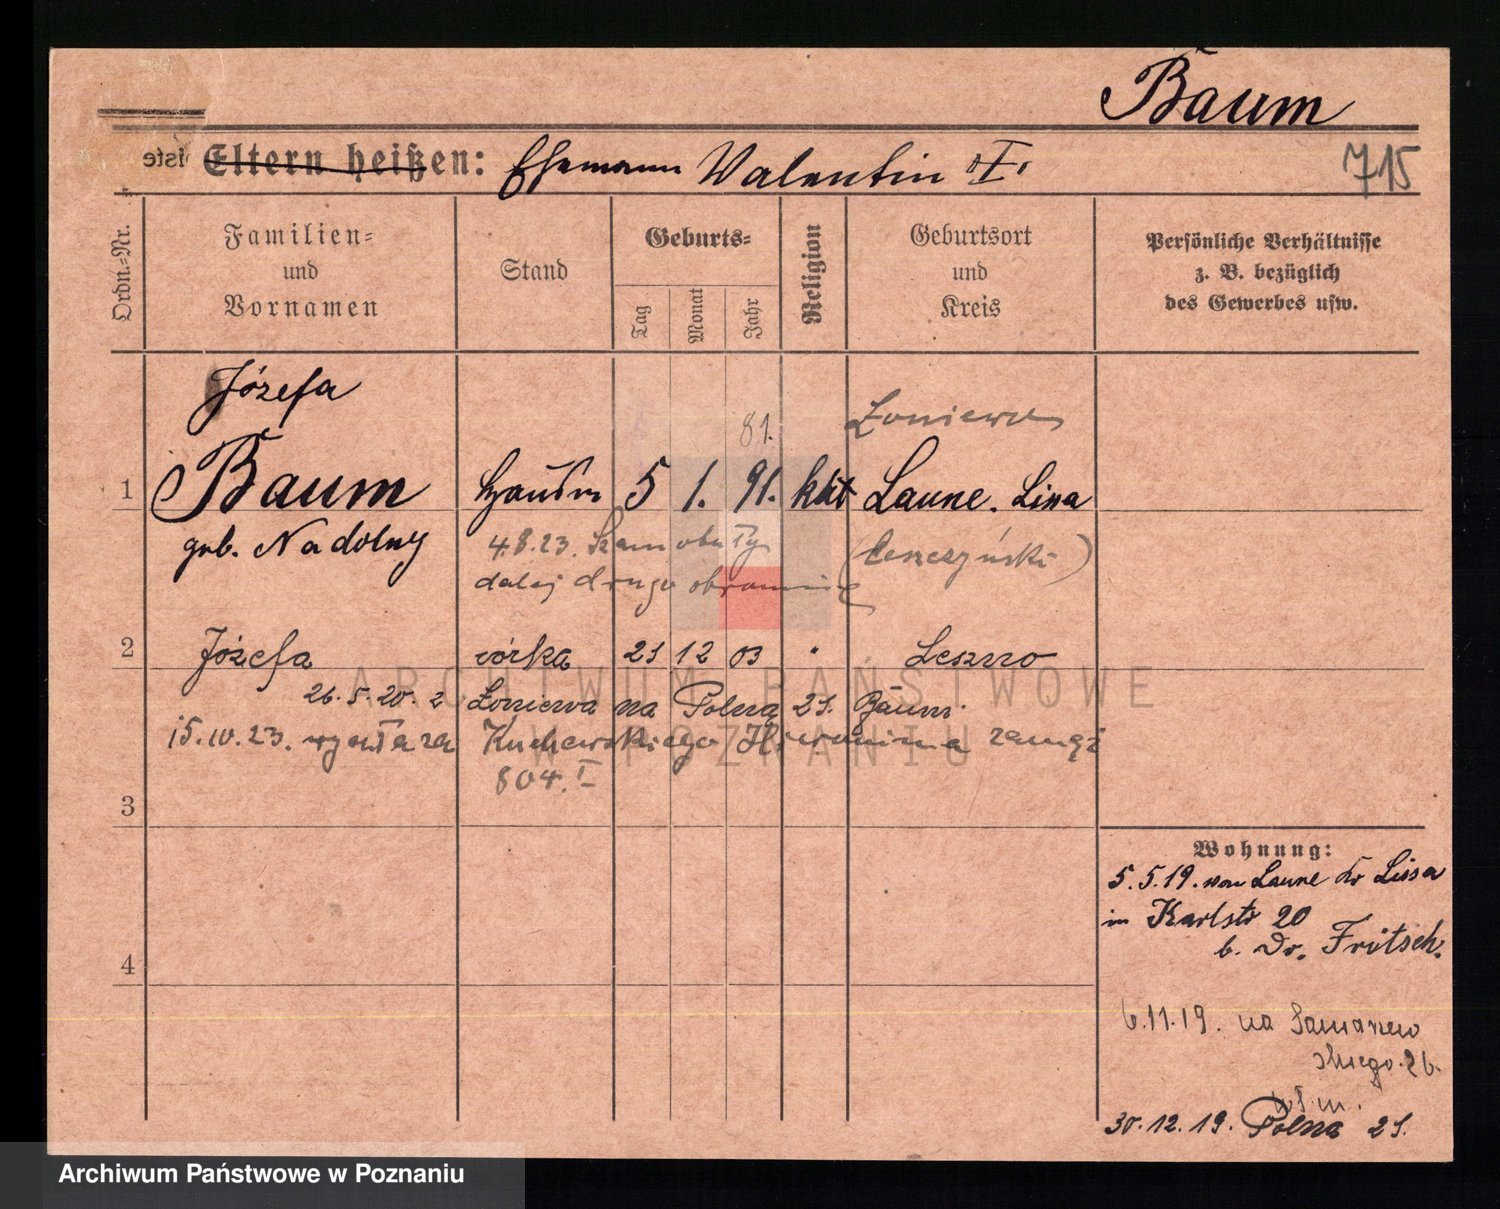 Baum
Eltern heißen: Ehemann Valentin "I"
715
Ordn.-Nr.
Familien- und Vornamen
Stand
Geburts-
Tag
Monat
Jahr
Religion
Geburtsort und Kreis
Persönliche Verhältnisse z. B. bezüglich des Gewerbes usw.
Józefa
81.
Łoniewo
1 Baum 5 1. 91. kat Laune. Lissa
geb. Nadolny
4.8.23. Szamotuły (leszczyński)
dalej
2 Józefa córka 21 12 03 " Leszno
26.5.20. z Łoniewa na Polną 21. Baum.
15.10.23. wyszła za Kuchowskiego Hieronima zamąż
804. I
3
4
Wohnung:
5.5.19. von Laune Kr Lissa
in Karlstr 20
b. Dr. Fritsch.
6.11.19. na
skiego. 26.
30.12.19. Polna 21.
ARCHIWUM PAŃSTWOWE
W POZNANIU
Archiwum Państwowe w Poznaniu